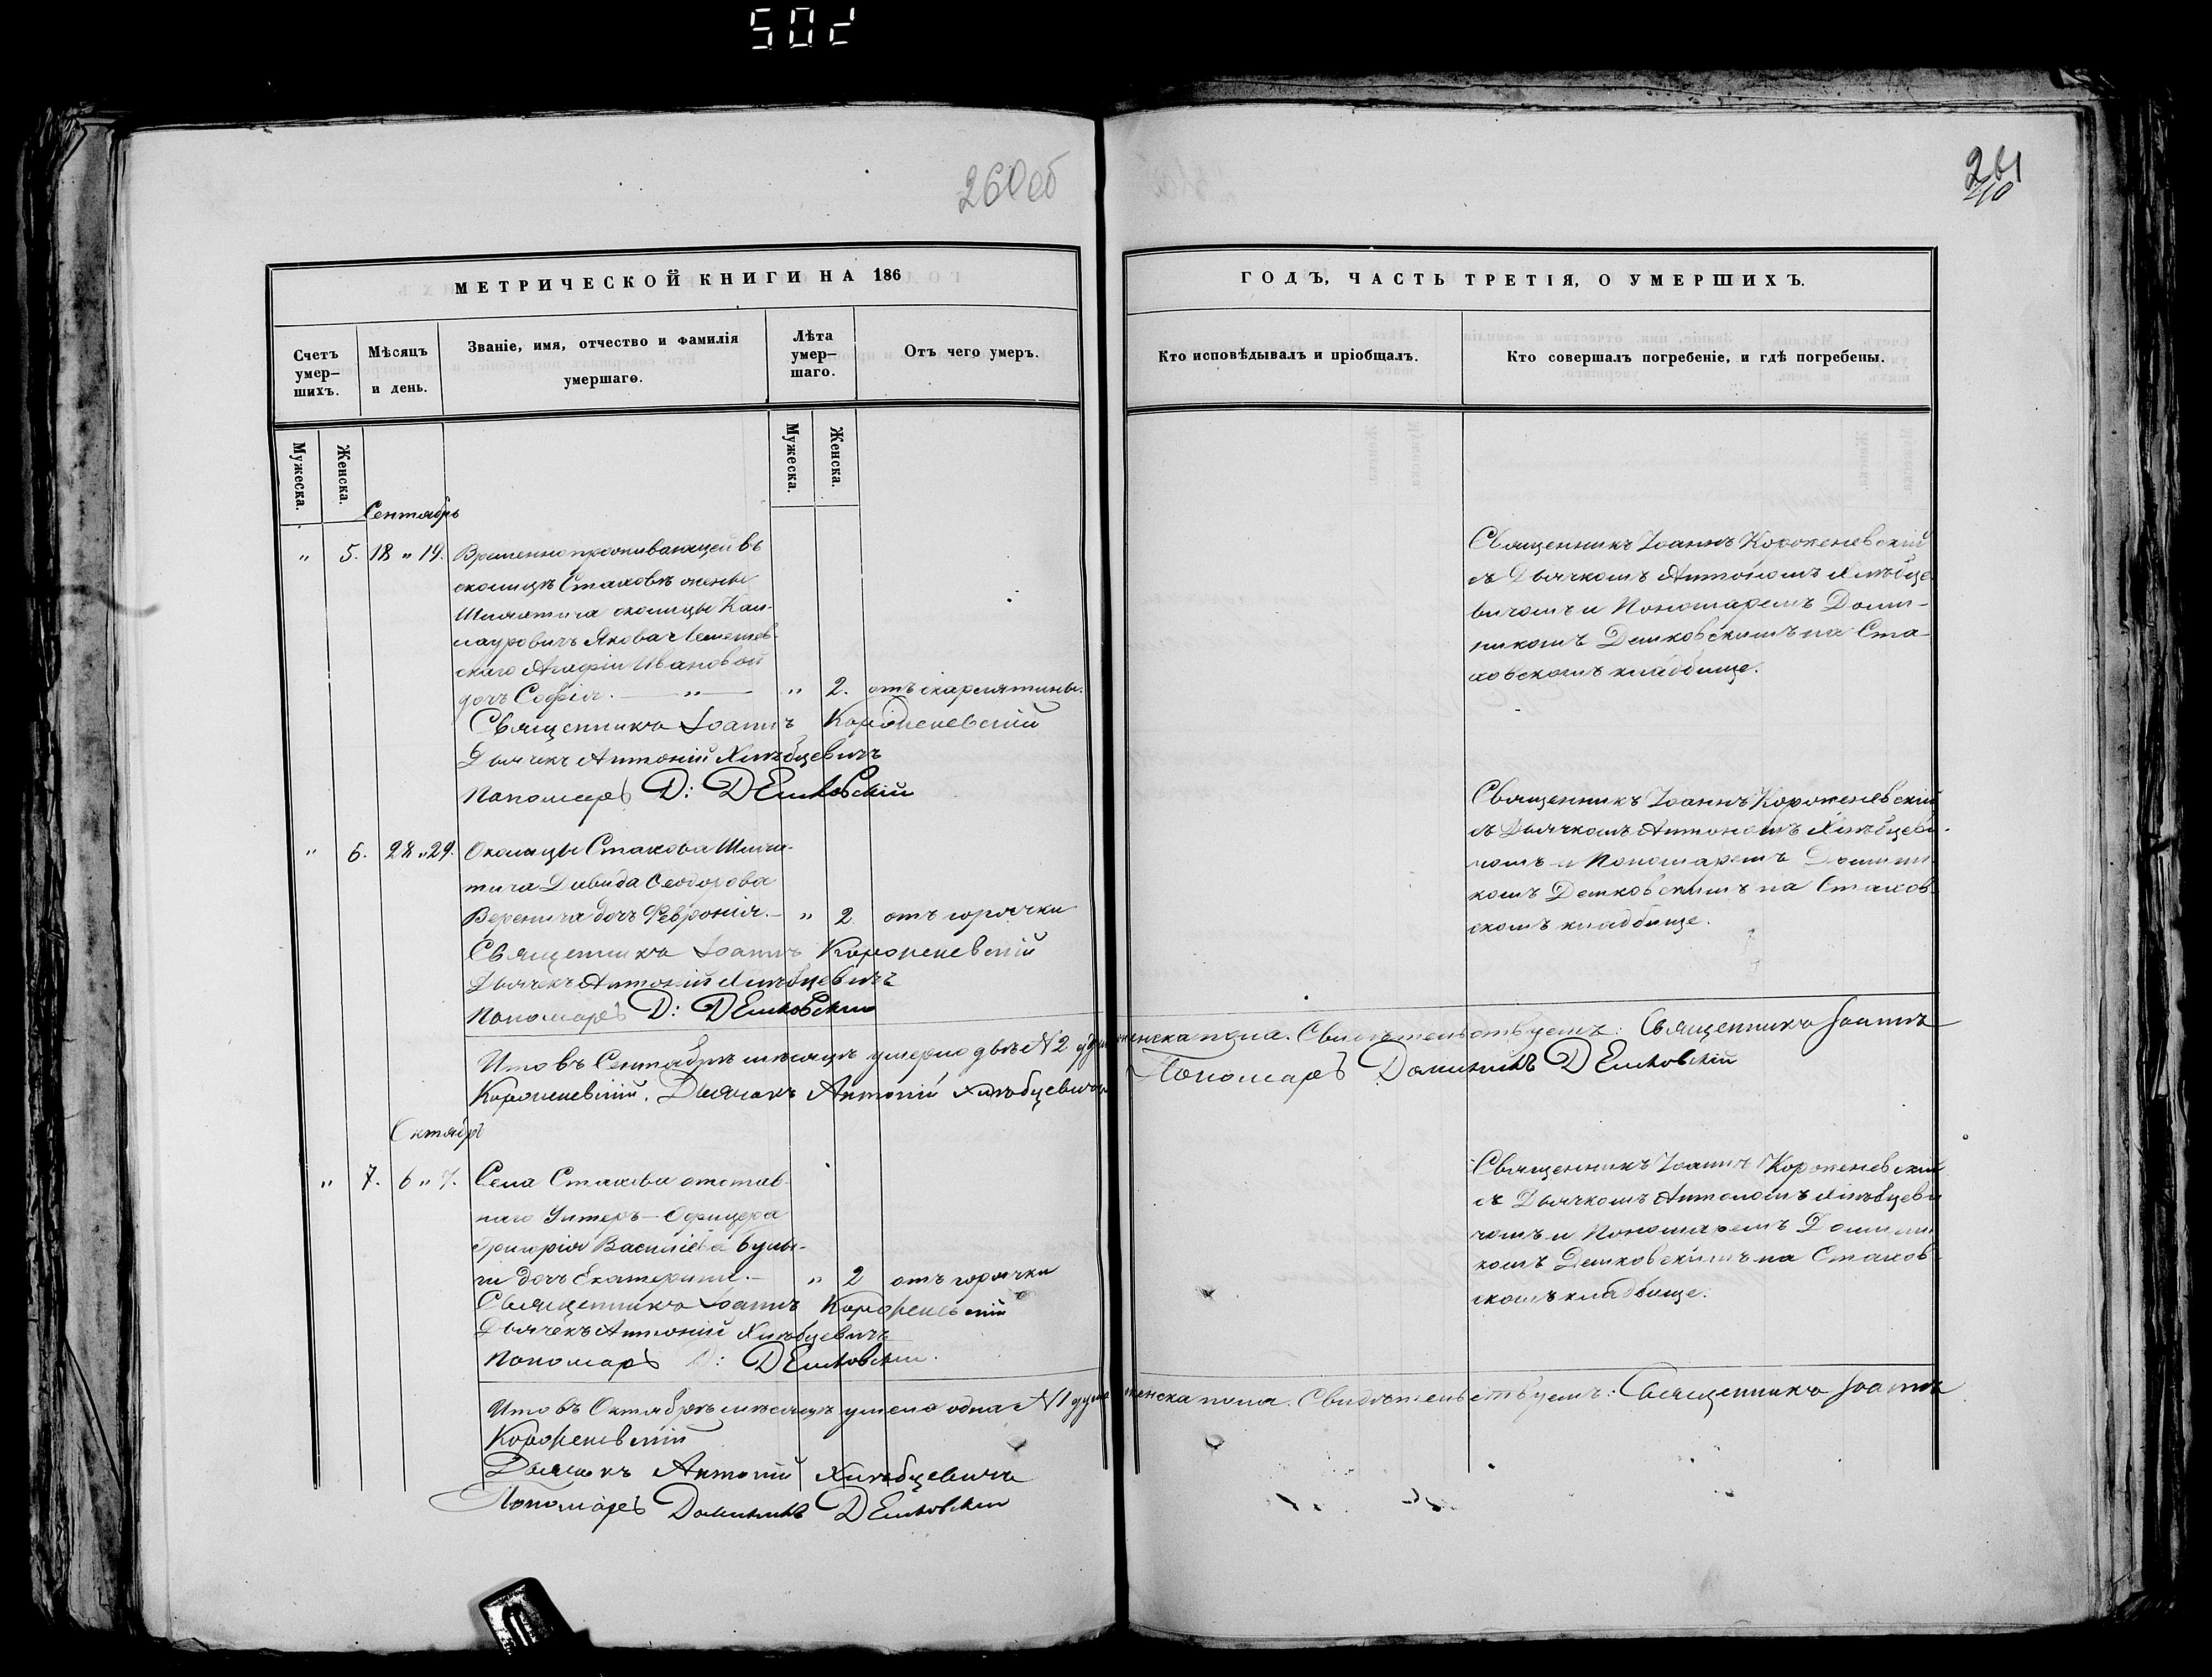 502
260об
261
МЕТРИЧЕСКОЙ КНИГИ НА 186
ГОДЪ, ЧАСТЬ ТРЕТІЯ, О УМЕРШИХЪ.
Счетъ умер-
шихъ.
Мѣсяцъ
и день.
Званіе, имя, отчество и фамилія
умершаго.
Лѣта
умер-
шаго.
Отъ чего умеръ.
Кто исповѣдывалъ и пріобщалъ.
Кто совершалъ погребеніе, и гдѣ погребены.
Мужеска.
Женска.
Мужеска.
Женска.
Сентябрь
" 5. 18 " 19. Временно проживающей въ
околицѣ Стаховѣ жены
Шляхтича околицы
Якова
Агафіи Ивановой
дочь Софія. — " — " 2. отъ скарлятины.
Священникъ Іоаннъ Короженевскій
Дьячекъ Антоній Хлѣбцевичъ
Пономарь Д: Демковскій
Священникъ Іоаннъ Короженевскій
съ Дьячкомъ Антоніомъ Хлѣбце-
вичомъ и Пономаремъ Доми-
никомъ Демковскимъ на Ста-
ховскомъ кладбище.
" 6. 28 " 29. Околицы Стахова Шлях-
тича Давида Феодорова
Веренича дочь Феѵронія. — " 2 отъ горячки
Священникъ Іоаннъ Короженевскій
Дьячекъ Антоній Хлѣбцевичъ
Пономарь Д: Демковскій
Священникъ Іоаннъ Короженевскій
съ Дьячкомъ Антоніомъ Хлѣбцеви-
чомъ и Пономаремъ Домини-
комъ Демковскимъ на Стахов-
скомъ кладбище.
Что въ Сентябрѣ мѣсяцѣ умерло двѣ № 2 души женска пола. Свидѣтельствуемъ: Священникъ Іоаннъ
Короженевскій. Дьячокъ Антоній Хлѣбцевичъ Пономарь Доминикъ Демковскій
Октябрь
" 7. 6 " 7. Села Стахова отстав-
наго Унтеръ-Офицера
Григорія Василіева Булы-
ги дочь Екатерина. — " 2 отъ горячки
Священникъ Іоаннъ Короженевскій
Дьячекъ Антоній Хлѣбцевичъ
Пономарь Д: Демковскій.
Священникъ Іоаннъ Короженевскій
съ Дьячкомъ Антоніомъ Хлѣбцеви-
чомъ и Пономаремъ Домини-
комъ Демковскимъ на Стахов-
скомъ кладбище.
Что въ Октябрѣ мѣсяцѣ умерла одна № 1 душа женска пола. Свидѣтельствуемъ: Священникъ Іоаннъ
Короженевскій
Дьячокъ Антоній Хлѣбцевичъ
Пономарь Доминикъ Демковскій